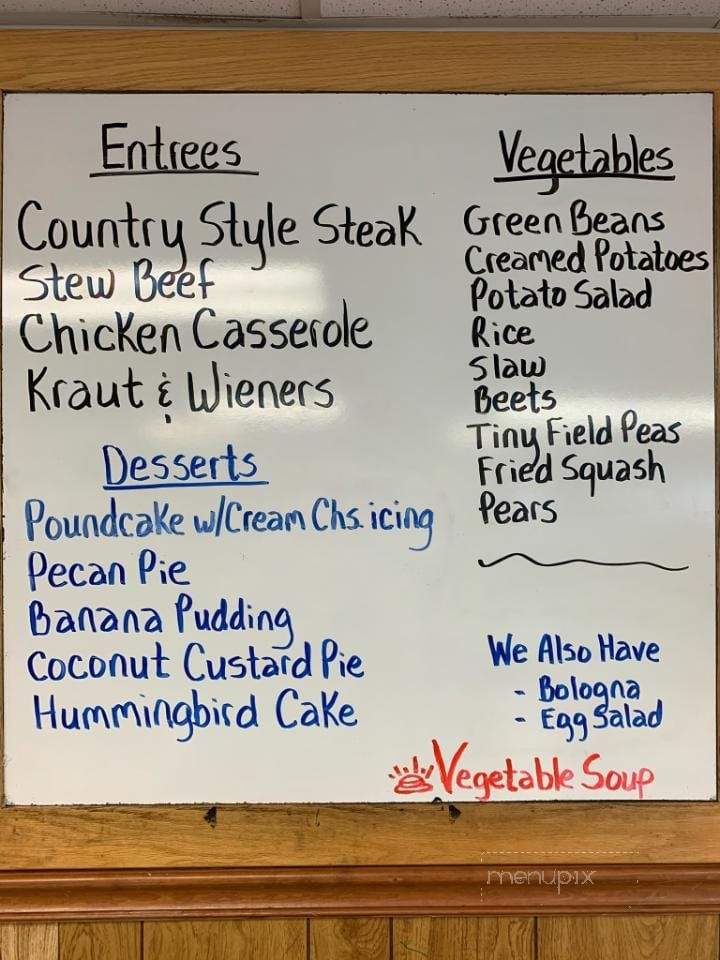 Entrees
Country Style Steak
Stew Beef
Chicken Casserole
Kraut & Wieners
Desserts
Poundcake w/Cream Chs. icing
Pecan Pie
Banana Pudding
Coconut Custard Pie
Hummingbird Cake
Vegetables
Green Beans
Creamed Potatoes
Potato Salad
Rice
Slaw
Beets
Tiny Field Peas
Fried Squash
Pears
We Also Have
- Bologna
- Egg Salad
Vegetable Soup
menupix